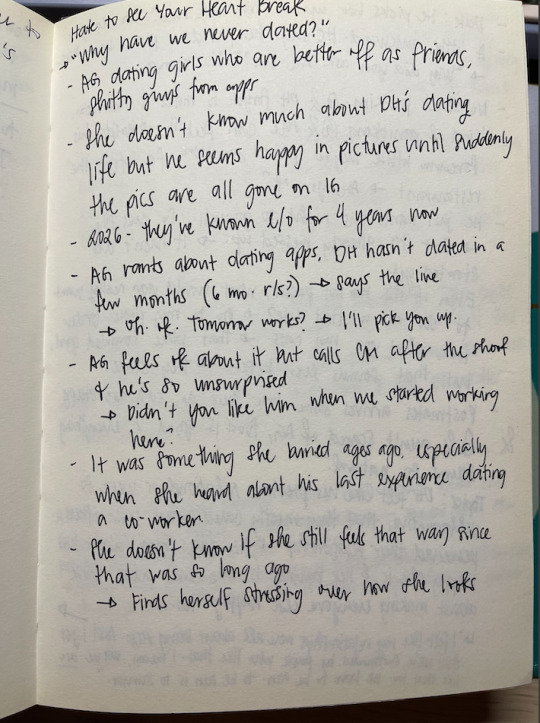 Hate to See Your Heart Break
→ "Why have we never dated?"
- AG dating girls who are better off as friends,
shitty guys from apps
- She doesn't know much about DH's dating
life but he seems happy in pictures until suddenly
the pics are all gone on IG
- 2026 - they've known e/o for 4 years now
- AG rants about dating apps, DH hasn't dated in a
few months (6 mo. r/s?) → says the line
→ Oh. Ok. Tomorrow works? → I'll pick you up.
- AG feels ok about it but calls CM after the shoot
& he's so unsurprised
→ Didn't you like him when we started working
here?
- It was something she buried ages ago, especially
when she heard about his last experience dating
a co-worker
- She doesn't know if she still feels that way since
that was so long ago
→ Finds herself stressing over how she looks